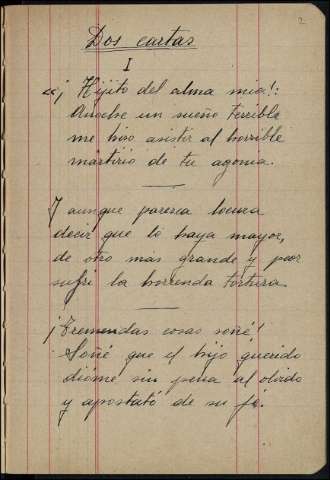 2
Dos cartas
I
«¡Hijito del alma mía!:
Anoche un sueño terrible
me hizo asistir al horrible
martirio de tu agonía.
Y aunque paresca locura
decir que lo haya mayor,
de otro mas grande y peor
sufrí la horrenda tortura.
¡Tremendas cosas soñé!
Soñé que el hijo querido
dióme sin pena al olvido
y apostató de su fé.